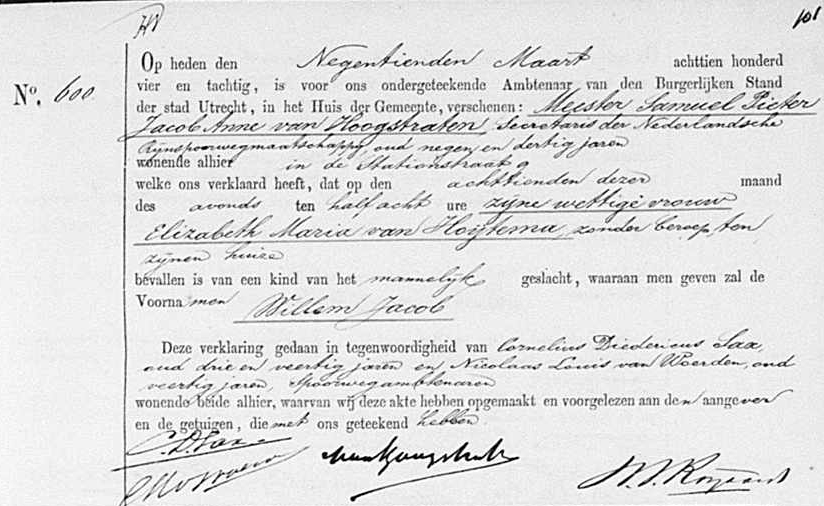 101
Op heden den Negentienden Maart achttien honderd
No. 600
vier en tachtig, is voor ons ondergeteekende Ambtenaar van den Burgerlijken Stand
der stad Utrecht, in het Huis der Gemeente, verschenen: Meester Samuel Pieter
Jacob Anne van Hoogstraten, Secretaris der Nederlandsche
Rijnspoorwegmaatschappij, oud negen en dertig jaren
wonende alhier in de Stationstraat
welke ons verklaard heeft, dat op den achttienden dezer maand
des avonds ten half acht ure zijne wettige vrouw
Elizabeth Maria van Hoijtema, zonder beroep, ten
zijnen huize
bevallen is van een kind van het mannelijk geslacht, waaraan men geven zal de
Voornamen Willem Jacob
Deze verklaring gedaan in tegenwoordigheid van Cornelius Diedericus Sax,
oud drie en veertig jaren en Nicolaas Louis van Woerden, oud
veertig jaren, Spoorwegambtenaren
wonende beide alhier, waarvan wij deze akte hebben opgemaakt en voorgelezen aan den aangever
en de getuigen, die met ons geteekend hebben
C.D. Sax